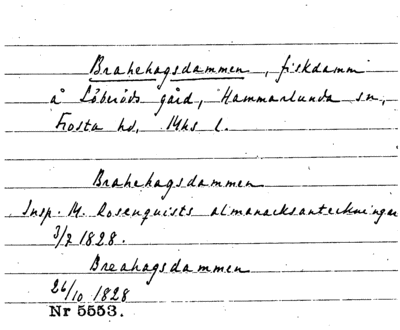 Brahehagsdammen, fiskdamm
å Löberöds gård, Hammarlunda sn,
Frosta hd, Mhs l.
Brahehagsdammen
Insp. M. Rosenquists almanacksanteckningar
3/7 1828.
Breahagsdammen
26/10 1828
Nr 5553.